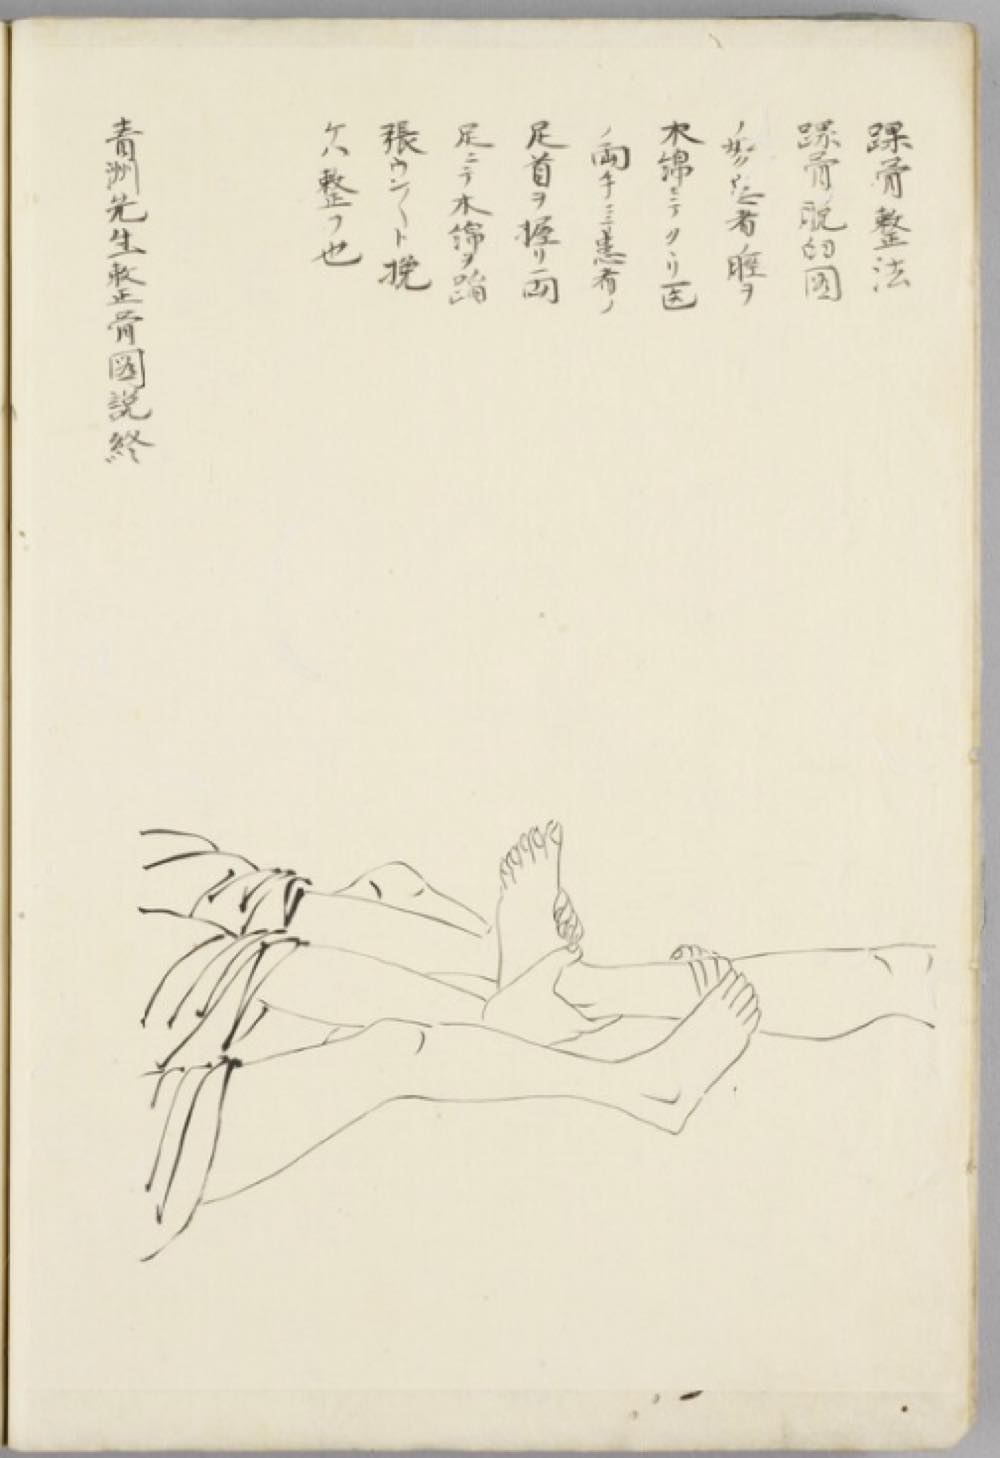 踝骨整法
踝骨脱臼図
ノ如ク患者ノ脛ヲ
木綿ニテククリ医
ノ両手ニ患者ノ
足首ヲ握リ両
足ニテ木綿ヲ踏
張ウン〳〵ト挽
ケハ整フ也
青洲先生整骨図説終